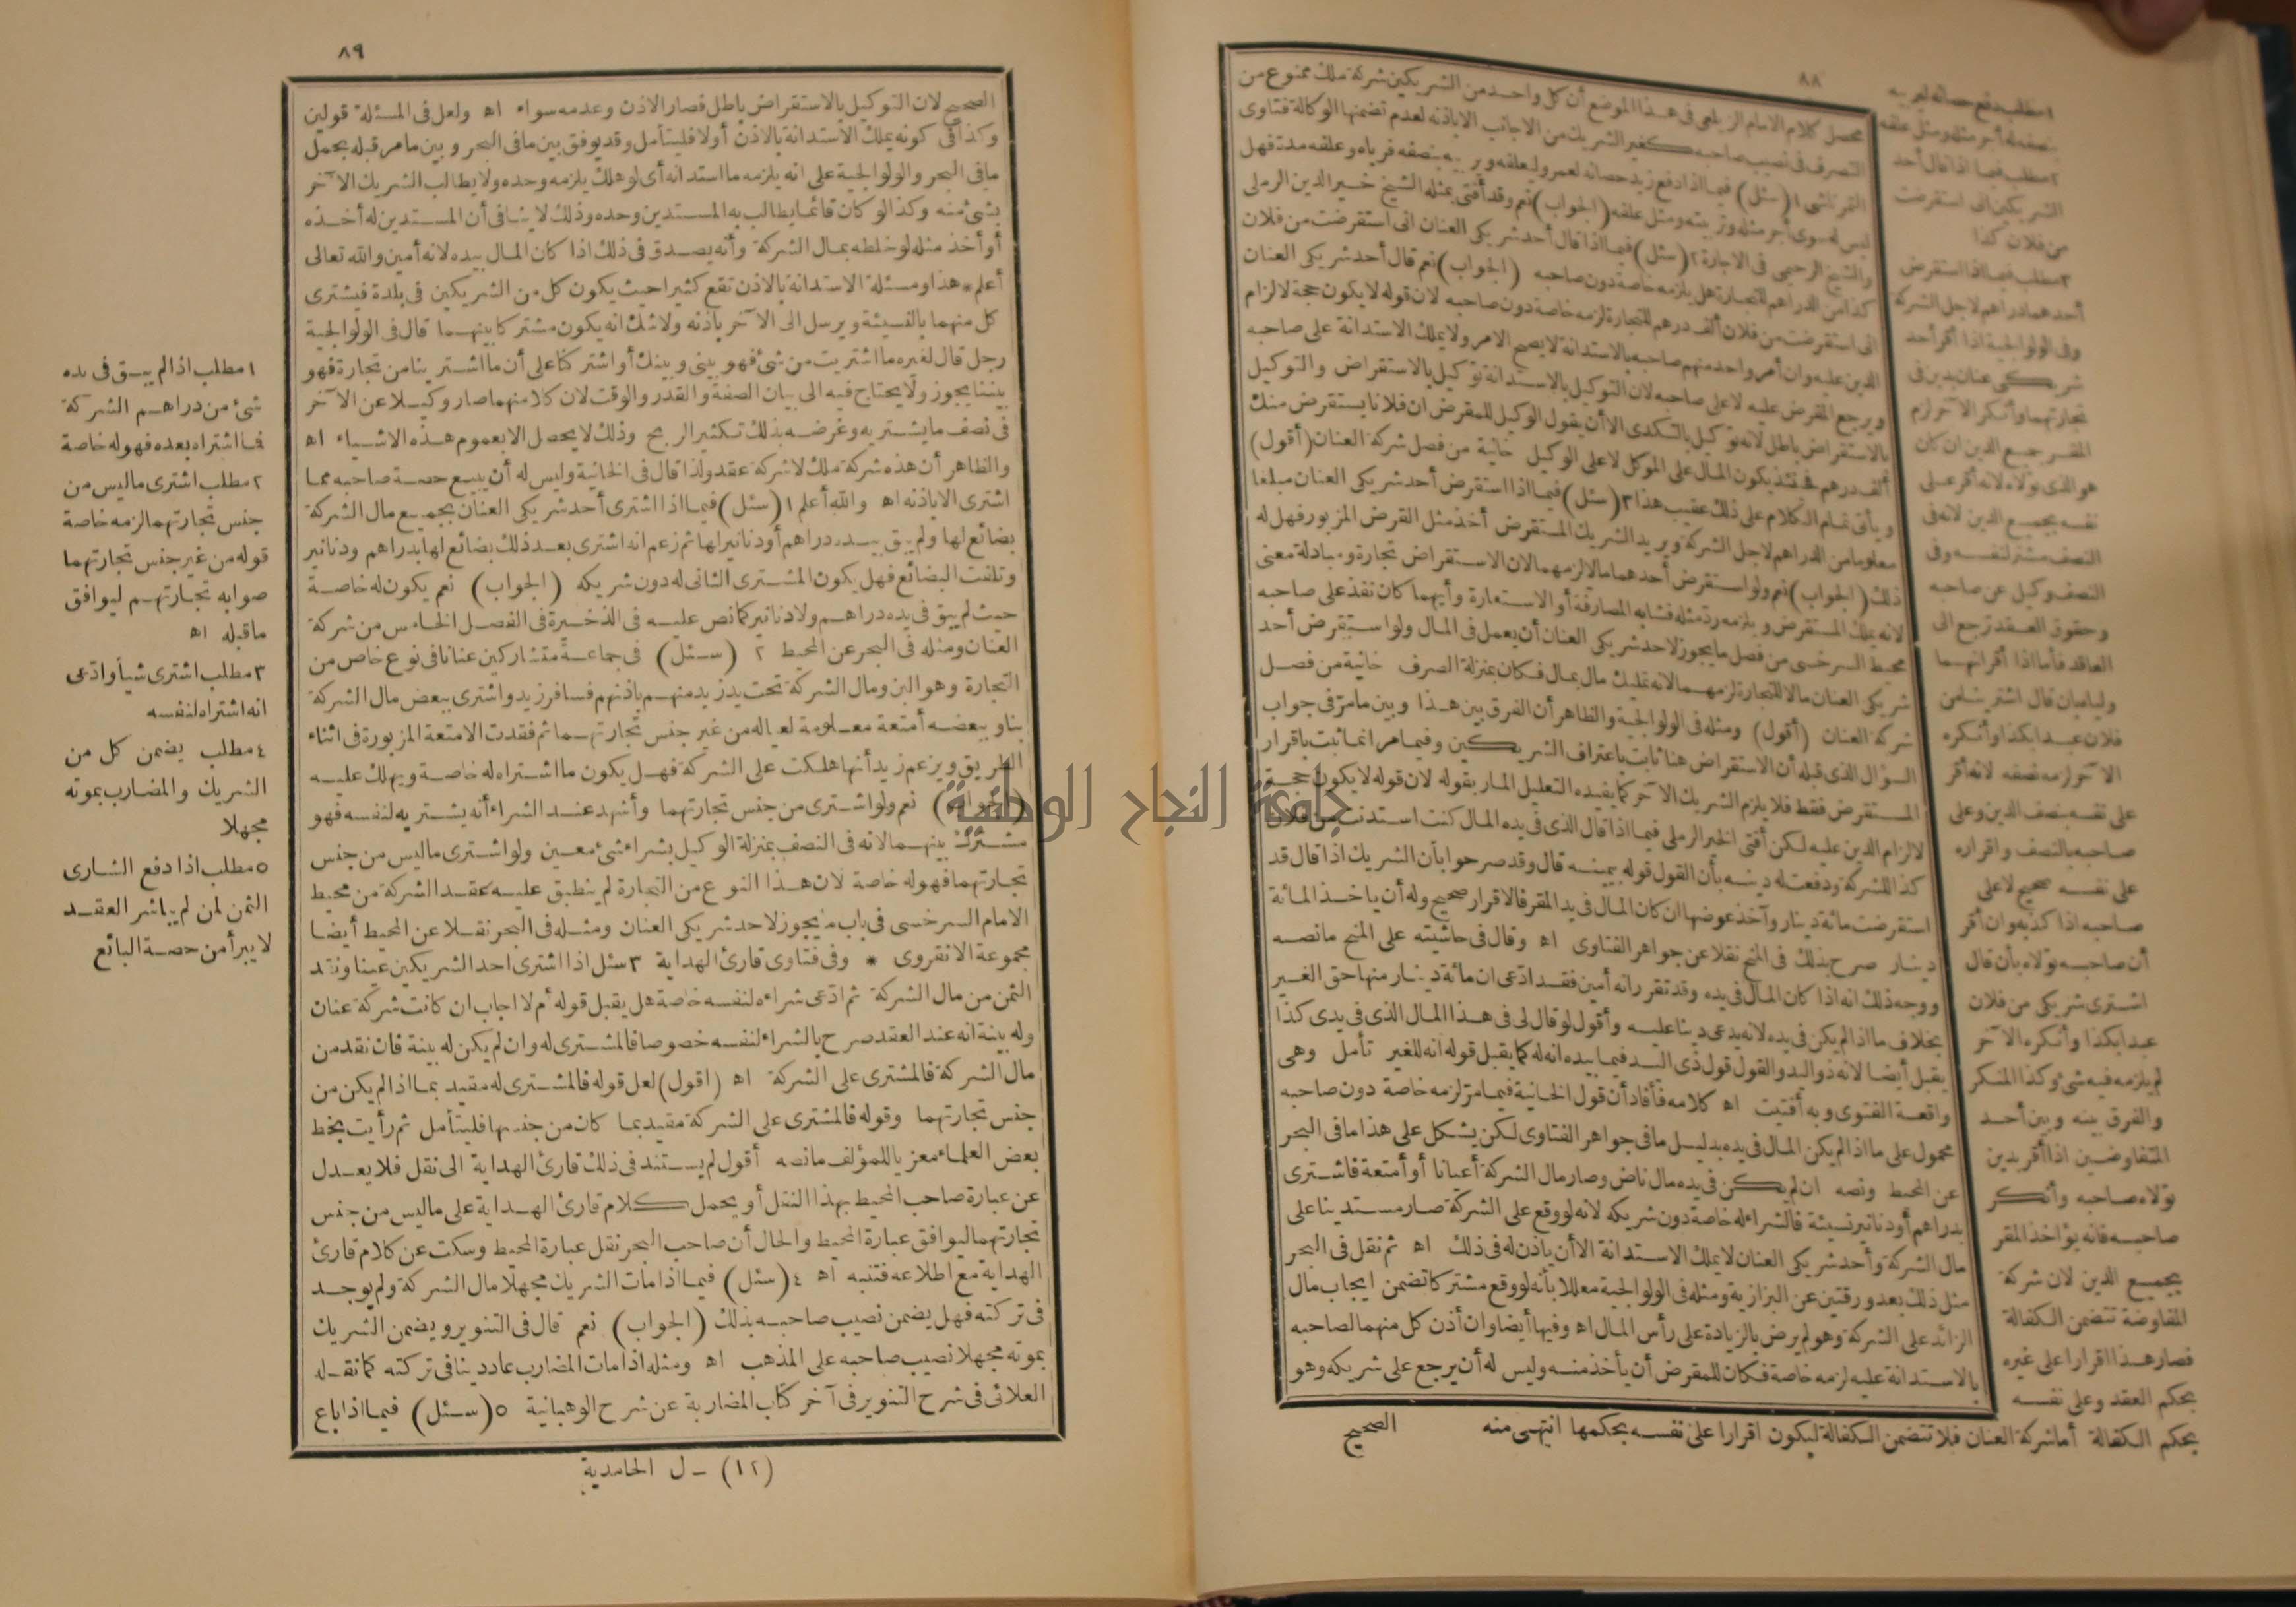 ٨٨
محصل كلام الامام الزيلعى فى هذا الموضع أن كل واحد من الشريكين شركة ملك ممنوع من
التصرف فى نصيب صاحبه كغير الشريك من الاجانب الا باذنه لعدم تضمنها الوكالة فتاوى
التمرتاشى ١ (سئل) فيما اذا دفع زيد حصانه لعمرو ليعلفه ويربيه بنصفه فرباه وعلفه مدة فهل
ليس له سوى أجر مثله وتربيته ومثل علفه (الجواب) نعم وقد أفتى بمثله الشيخ خير الدين الرملى
والشيخ الرحيمى فى الاجارة ٢ (سئل) فيما اذا قال أحد شريكى العنان انى استقرضت من فلان
كذا من الدراهم للتجارة هل يلزمه خاصة دون صاحبه (الجواب) نعم قال أحد شريكى العنان
انى استقرضت من فلان ألف درهم للتجارة لزمه خاصة دون صاحبه لان قوله لا يكون حجة لالزام
الدين عليه وان أمر واحد منهم صاحبه بالاستدانة لا يصح الامر ولا يملك الاستدانة على صاحبه
ويرجع المقرض عليه لا على صاحبه لان التوكيل بالاستدانة توكيل بالاستقراض والتوكيل
بالاستقراض باطل لانه توكيل بالتكدى الا أن يقول الوكيل للمقرض ان فلانا يستقرض منك
ألف درهم فحينئذ يكون المال على الموكل لا على الوكيل خانية من فصل شركة العنان (أقول)
ويأتى تمام الكلام على ذلك عقيب هذا ٣ (سئل) فيما اذا استقرض أحد شريكى العنان مبلغا
معلوما من الدراهم لاجل الشركة ويريد الشريك المستقرض أخذ مثل القرض المزبور فهل له
ذلك (الجواب) نعم ولو استقرض أحدهما مالا لزمهما لان الاستقراض تجارة ومبادلة معنى
لانه يملك المستقرض ويلزمه رد مثله فشابه المصارفة أو الاستعارة وأيهما كان نفذ على صاحبه
محيط السرخسى من فصل ما يجوز لاحد شريكى العنان أن يعمل فى المال ولو استقرض أحد
شريكى العنان مالا للتجارة لزمهما لانه تمليك مال بمال فكان بمنزلة الصرف خانية من فصل
شركة العنان (أقول) ومثله فى الولوالجية والظاهر أن الفرق بين هذا وبين ما مر فى جواب
السؤال الذى قبله أن الاستقراض هنا ثابت باعتراف الشريكين وفيما مر انما ثبت باقرار
المستقرض فقط فلا يلزم الشريك الآخر كما يفيده التعليل المار بقوله لان قوله لا يكون حجة
لالزام الدين عليه لكن أفتى الخير الرملى فيما اذا قال الذى فى يده المال كنت استدنت من فلان
كذا للشركة ودفعت له دينه بأن القول قوله بيمينه قال وقد صرحوا بأن الشريك اذا قال قد
استقرضت مائة دينار وآخذ عوضها ان كان المال فى يد المقر فالاقرار صحيح وله أن ياخذ المائة
دينار صرح بذلك فى المنح نقلا عن جواهر الفتاوى اه وقال فى حاشيته على المنح ما نصه
ووجه ذلك انه اذا كان المال فى يده وقد تقرر انه أمين فقد ادعى ان مائة دينار منها حق الغير
بخلاف ما اذا لم يكن فى يده لانه يدعى دينا عليه وأقول لو قال لى فى هذا المال الذى فى يدى كذا
يقبل أيضا لانه ذو اليد والقول قول ذى اليد فيما بيده انه له كما يقبل قوله انه للغير تأمل وهى
واقعة الفتوى وبه أفتيت اه كلامه فأفاد أن قول الخانية فيما مر لزمه خاصة دون صاحبه
محمول على ما اذا لم يكن المال فى يده بدليل ما فى جواهر الفتاوى لكن يشكل على هذا ما فى البحر
عن المحيط ونصه ان لم يكن فى يده مال ناض وصار مال الشركة أعيانا أو أمتعة فاشترى
بدراهم أو دنانير نسيئة فالشراء له خاصة دون شريكه لانه لو وقع على الشركة صار مستدينا على
مال الشركة وأحد شريكى العنان لا يملك الاستدانة الا أن ياذن له فى ذلك اه ثم نقل فى البحر
مثل ذلك بعد ورقتين عن البزازية ومثله فى الولوالجية معللا بأنه لو وقع مشتركا تضمن ايجاب مال
الزائد على الشركة وهو لم يرض بالزيادة على رأس المال اه وفيها أيضا وان أذن كل منهما لصاحبه
بالاستدانة عليه لزمه خاصة فكان للمقرض أن يأخذ منه وليس له أن يرجع على شريكه وهو
الصحيح
١ مطلب دفع حصانه ليربيه
بنصفه له أجر مثله ومثل علفه
٢ مطلب فيما اذا قال أحد
الشريكين انى استقرضت
من فلان كذا
٣ مطلب فيما اذا استقرض
أحدهما دراهم لاجل الشركة
وفى الولوالجية اذا أقر أحد
شريكى عنان بدين فى
تجارتهما وأنكر الآخر لزم
المقر جميع الدين ان كان
هو الذى تولاه لانه أقر على
نفسه بجميع الدين لانه فى
النصف مشتر لنفسه وفى
النصف وكيل عن صاحبه
وحقوق العقد ترجع الى
العاقد فأما اذا أقر انهما
ولياه بان قال اشترينا من
فلان عبدا بكذا وأنكره
الآخر لزمه نصفه لانه أقر
على نفسه بنصف الدين وعلى
صاحبه بالنصف واقراره
على نفسه صحيح لا على
صاحبه اذا كذبه وان أقر
أن صاحبه تولاه بأن قال
اشترى شريكى من فلان
عبدا بكذا وأنكره الآخر
لم يلزمه فيه شئ وكذا المنكر
والفرق بينه وبين أحد
المتفاوضين اذا أقر بدين
تولاه صاحبه وأنكر
صاحبه فانه يؤاخذ المقر
بجميع الدين لان شركة
المفاوضة تتضمن الكفالة
فصار هذا اقرارا على غيره
بحكم العقد وعلى نفسه
بحكم الكفالة أما شركة العنان فلا تتضمن الكفالة ليكون اقرارا على نفسه بحكمها انتهى منه
٨٩
الصحيح لان التوكيل بالاستقراض باطل فصار الاذن وعدمه سواء اه ولعل فى المسئلة قولين
وكذا فى كونه يملك الاستدانة بالاذن أولا فليتأمل وقد يوفق بين ما فى البحر وبين ما مر قبله بحمل
ما فى البحر والولوالجية على انه يلزمه ما استدانه أى لو هلك يلزمه وحده ولا يطالب الشريك الآخر
بشئ منه وكذا لو كان قائما يطالب به المستدين وحده وذلك لا ينافى أن المستدين له أخذه
أو أخذ مثله لو خلطه بمال الشركة وأنه يصدق فى ذلك اذا كان المال بيده لانه أمين والله تعالى
أعلم * هذا ومسئلة الاستدانة بالاذن تقع كثيرا حيث يكون كل من الشريكين فى بلدة فيشترى
كل منهما بالنسيئة ويرسل الى الآخر باذنه ولا شك انه يكون مشتركا بينهما قال فى الولوالجية
رجل قال لغيره ما اشتريت من شئ فهو بينى وبينك أو اشتركا على أن ما اشترينا من تجارة فهو
بيننا يجوز ولا يحتاج فيه الى بيان الصفة والقدر والوقت لان كلا منهما صار وكيلا عن الآخر
فى نصف ما يشتريه وغرضه بذلك تكثير الربح وذلك لا يحصل الا بعموم هذه الاشياء اه
والظاهر أن هذه شركة ملك لا شركة عقد ولذا قال فى الخانية وليس له أن يبيع حصة صاحبه مما
اشترى الا باذنه اه والله أعلم ١ (سئل) فيما اذا اشترى أحد شريكى العنان بجميع مال الشركة
بضائع لها ولم يبق بيده دراهم أو دنانير لها ثم زعم انه اشترى بعد ذلك بضائع لها بدراهم ودنانير
وتلفت البضائع فهل يكون المشترى الثانى له دون شريكه (الجواب) نعم يكون له خاصة
حيث لم يبق فى يده دراهم ولا دنانير كما نص عليه فى الذخيرة فى الفصل الخامس من شركة
العنان ومثله فى البحر عن المحيط ٢ (سئل) فى جماعة متشاركين عنانا فى نوع خاص من
التجارة وهو البن ومال الشركة تحت يد زيد منهم باذنهم فسافر زيد واشترى ببعض مال الشركة
بنا وببعضه أمتعة معلومة لعياله من غير جنس تجارتهما ثم فقدت الامتعة المزبورة فى اثناء
الطريق ويزعم زيد أنها هلكت على الشركة فهل يكون ما اشتراه له خاصة ويهلك عليه
(الجواب) نعم ولو اشترى من جنس تجارتهما وأشهد عند الشراء أنه يشتريه لنفسه فهو
مشترك بينهما لانه فى النصف بمنزلة الوكيل بشراء شئ معين ولو اشترى ما ليس من جنس
تجارتهما فهو له خاصة لان هذا النوع من التجارة لم ينطبق عليه عقد الشركة من محيط
الامام السرخسى فى باب ما يجوز لاحد شريكى العنان ومثله فى البحر نقلا عن المحيط أيضا
مجموعة الانقروى * وفى فتاوى قارئ الهداية ٣ سئل اذا اشترى احد الشريكين عينا ونقد
الثمن من مال الشركة ثم ادعى شراءه لنفسه خاصة هل يقبل قوله أم لا اجاب ان كانت شركة عنان
وله بينة انه عند العقد صرح بالشراء لنفسه خصوصا فالمشترى له وان لم يكن له بينة فان نقد من
مال الشركة فالمشترى على الشركة اه (اقول) لعل قوله فالمشترى له مقيد بما اذا لم يكن من
جنس تجارتهما وقوله فالمشترى على الشركة مقيد بما كان من جنسها فليتأمل ثم رأيت بخط
بعض العلماء معزيا للمؤلف ما نصه أقول لم يستند فى ذلك قارئ الهداية الى نقل فلا يعدل
عن عبارة صاحب المحيط بهذا النقل أو يحمل كلام قارئ الهداية على ما ليس من جنس
تجارتهما ليوافق عبارة المحيط والحال أن صاحب البحر نقل عبارة المحيط وسكت عن كلام قارئ
الهداية مع اطلاعه فتنبه اه ٤ (سئل) فيما اذا مات الشريك مجهلا مال الشركة ولم يوجد
فى تركته فهل يضمن نصيب صاحبه بذلك (الجواب) نعم قال فى التنوير ويضمن الشريك
بموته مجهلا نصيب صاحبه على المذهب اه ومثله اذا مات المضارب عاد دينا فى تركته كما نقله
العلائى فى شرح التنوير فى آخر كتاب المضاربة عن شرح الوهبانية ٥ (سئل) فيما اذا باع
١ مطلب اذا لم يبق فى يده
شئ من دراهم الشركة
فما اشتراه بعده فهو له خاصة
٢ مطلب اشترى ما ليس من
جنس تجارتهما لزمه خاصة
قوله من غير جنس تجارتهما
صوابه تجارتهم ليوافق
ما قبله اه
٣ مطلب اشترى شيأ وادعى
انه اشتراه لنفسه
٤ مطلب يضمن كل من
الشريك والمضارب بموته
مجهلا
٥ مطلب اذا دفع الشارى
الثمن لمن لم يباشر العقد
لا يبرأ من حصة البائع
(١٢) - ل الحامدية
جامعة النجاح الوطنية